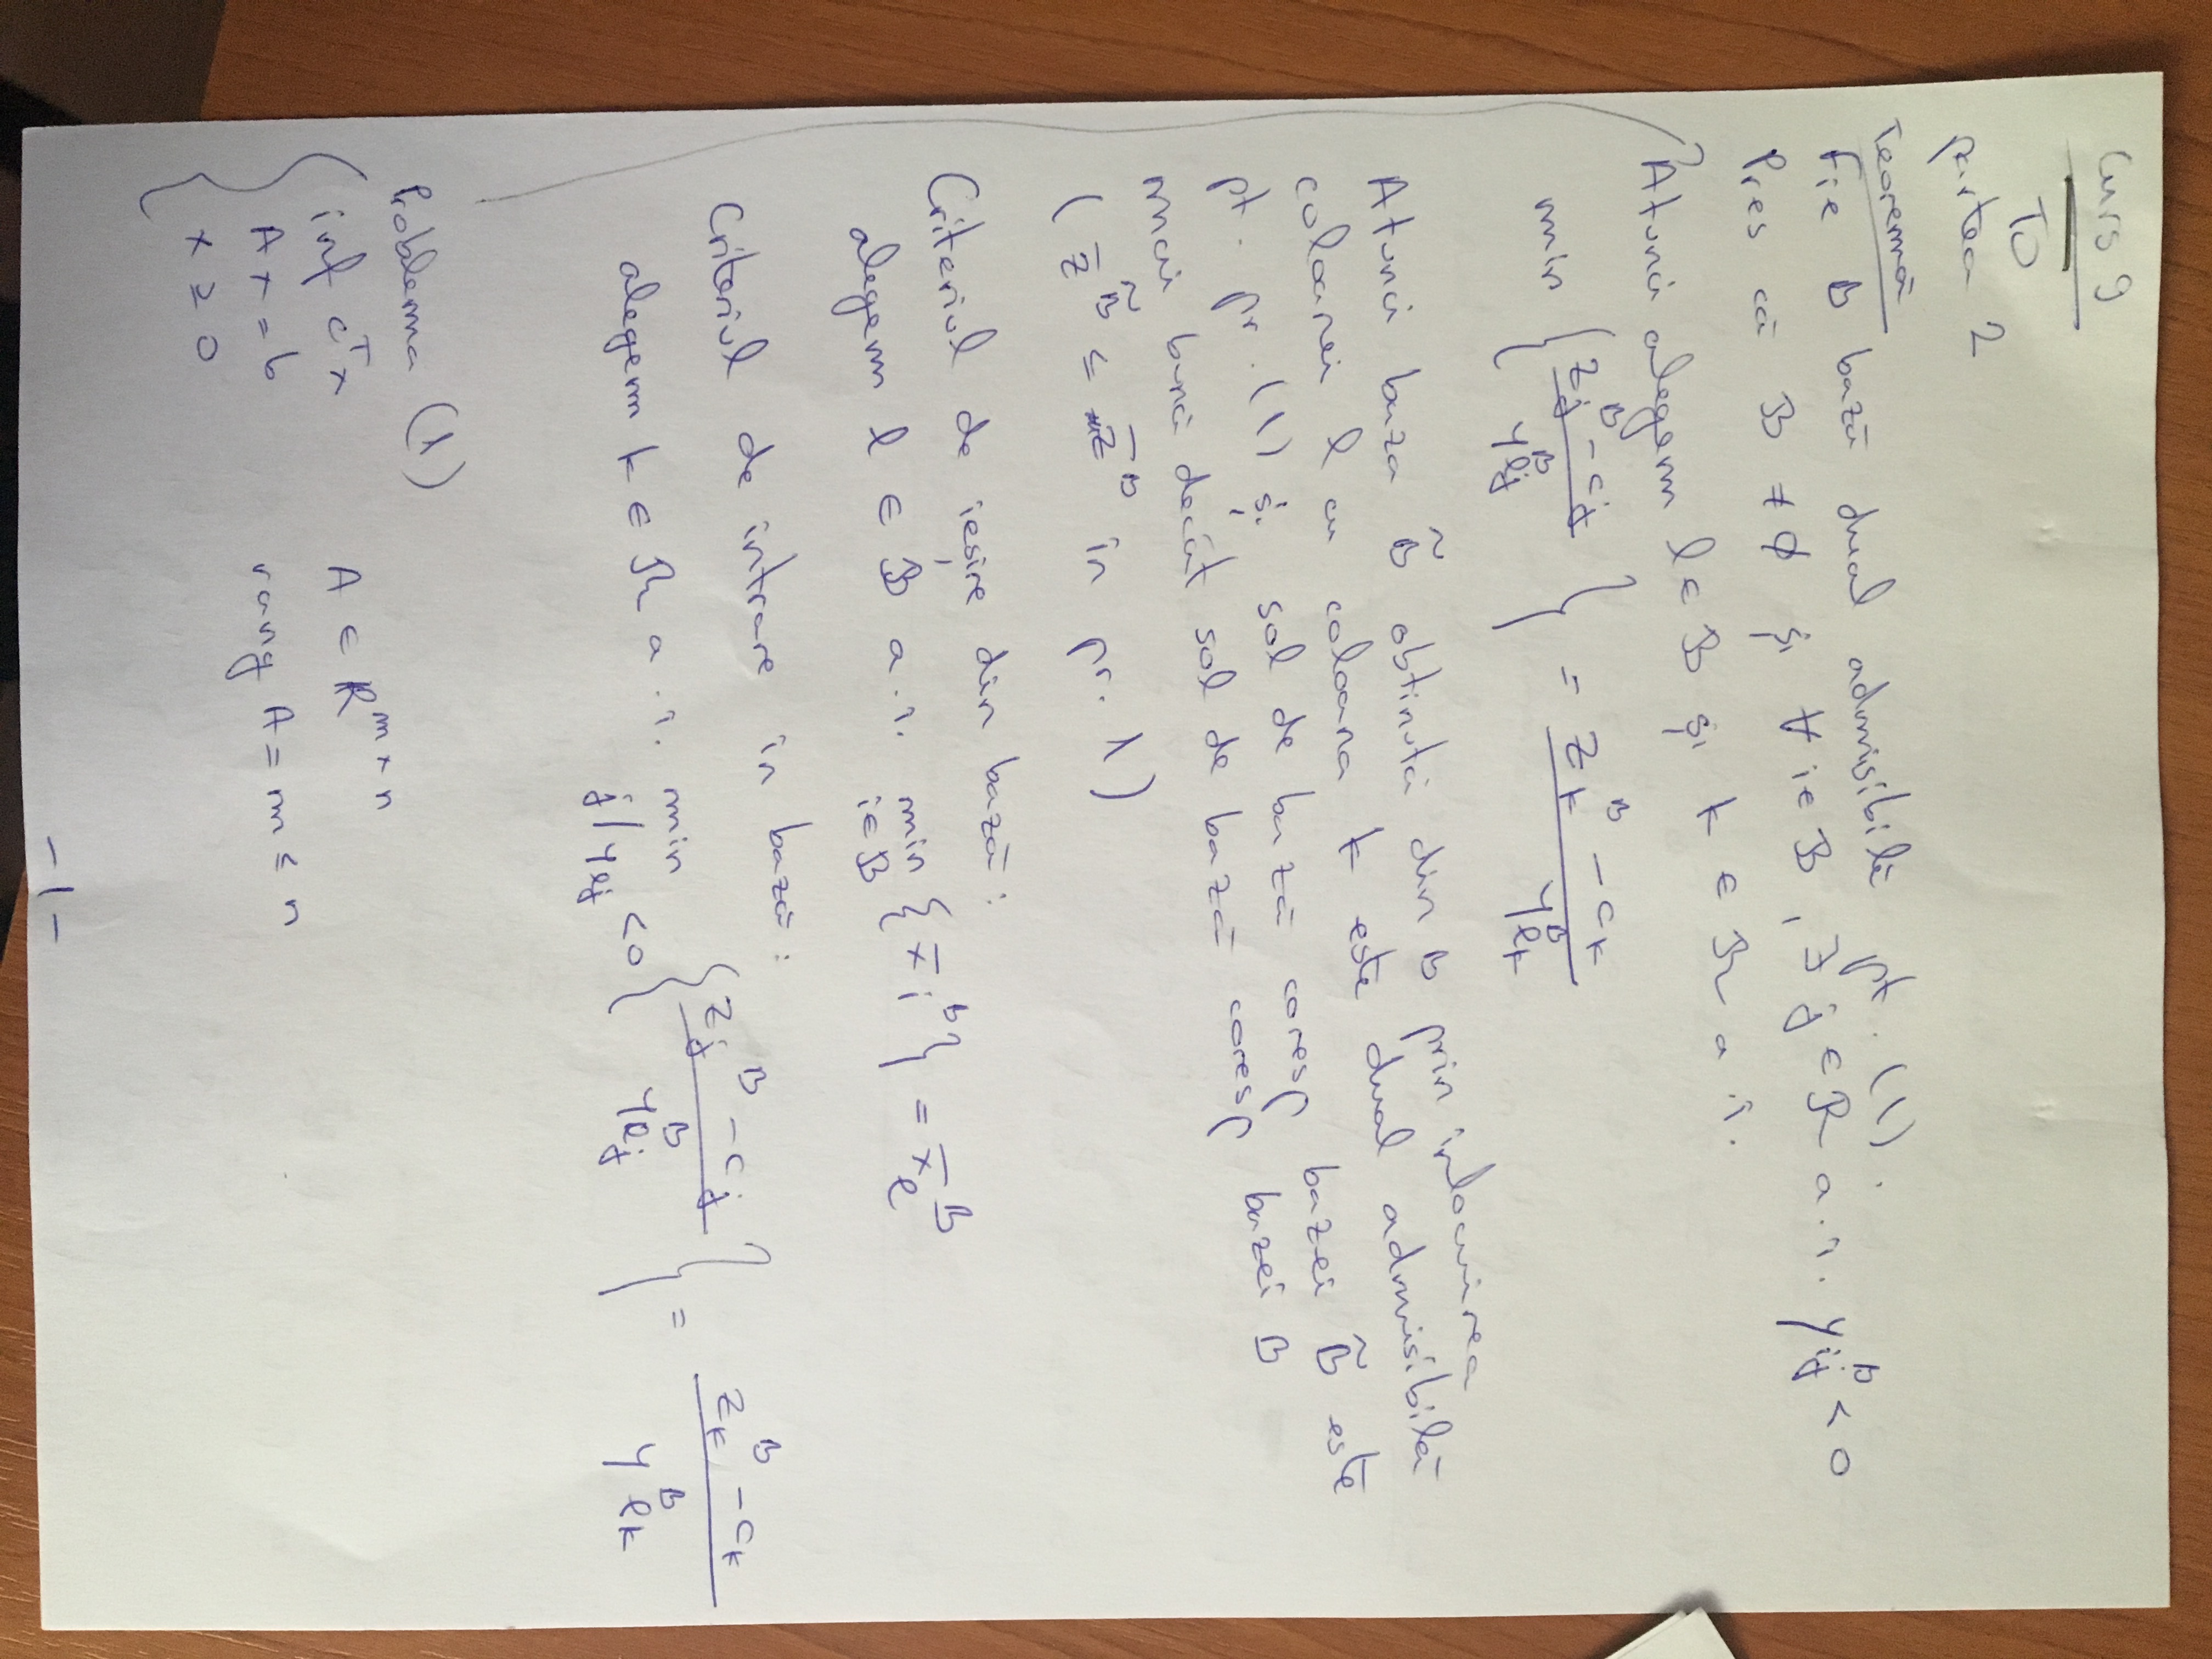 Curs 9
TO
partea 2
Teoremă
Fie B bază dual admisibilă pt. (1).
Pres că ℬ ≠ ∅ și ∀ i∈ℬ, ∃ j∈ℛ a.î. y_ij^B < 0
Atunci alegem l∈ℬ și k∈ℛ a.î.
min { (z_j^B - c_j) / y_lj^B } = (z_k^B - c_k) / y_lk^B
Atunci baza B̃ obținută din B prin înlocuirea
coloanei l cu coloana k este dual admisibilă
pt. pr. (1) și sol de bază coresp bazei B̃ este
mai bună decât sol de bază coresp bazei B
(z̄^B̃ ≤ z̄^B în pr. 1)
Criteriul de ieșire din bază:
alegem l ∈ ℬ a.î. min i∈ℬ { x̄_i^B } = x̄_l^B
Criteriul de intrare în bază:
alegem k ∈ ℛ a.î. min j | y_lj < 0 { (z_j^B - c_j) / y_lj^B } = (z_k^B - c_k) / y_lk^B
Problema (1)
{ inf c^T x A ∈ R^m×n
A x = b rang A = m ≤ n
x ≥ 0
-1-